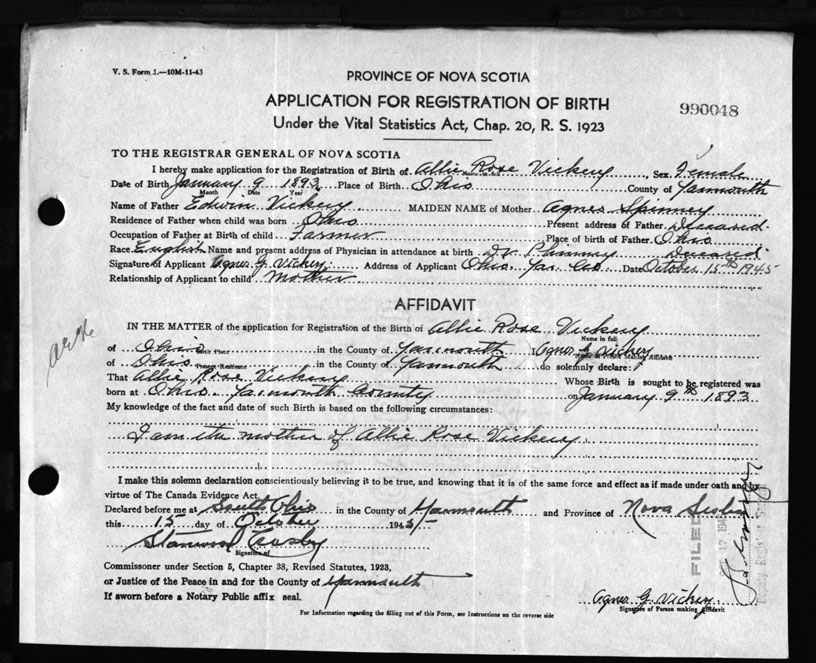 V. S. Form 1.—10M-11-43
PROVINCE OF NOVA SCOTIA
APPLICATION FOR REGISTRATION OF BIRTH
990048
Under the Vital Statistics Act, Chap. 20, R. S. 1923
TO THE REGISTRAR GENERAL OF NOVA SCOTIA
I hereby make application for the Registration of Birth of Allie Rose Vickery, Sex Female
Date of Birth January 9 1893 Place of Birth Ohio County of Yarmouth
Month Date Year
Name of Father Edwin Vickery MAIDEN NAME of Mother Agnes Spinney
Residence of Father when child was born Ohio Present address of Father Deceased
Occupation of Father at Birth of child Farmer Place of birth of Father Ohio
Race English Name and present address of Physician in attendance at birth Dr. Deceased
Signature of Applicant Agnes G. Vickery Address of Applicant Ohio Yar. Co Date October 15th 1945
Relationship of Applicant to child Mother
AFFIDAVIT
IN THE MATTER of the application for Registration of the Birth of Allie Rose Vickery
Name in full
of Ohio in the County of Yarmouth I, Agnes G Vickery
Birth Place Name in Full of Person Making Affidavit
of Ohio in the County of Yarmouth do solemnly declare:
Present Residence
That Allie Rose Vickery Whose Birth is sought to be registered was
born at Ohio Yarmouth County on January 9th 1893
My knowledge of the fact and date of such Birth is based on the following circumstances:
I am the mother of Allie Rose Vickery.
I make this solemn declaration conscientiously believing it to be true, and knowing that it is of the same force and effect as if made under oath and by
virtue of The Canada Evidence Act.
Declared before me at South Ohio in the County of Yarmouth and Province of Nova Scotia
this 15 day of October 1945
Stanwood Crosby
Signature of
Commissioner under Section 5, Chapter 38, Revised Statutes, 1923,
or Justice of the Peace in and for the County of Yarmouth
If sworn before a Notary Public affix seal.
Agnes G. Vickery
Signature of Person making Affidavit
For Information regarding the filling out of this Form, see Instructions on the reverse side
FILED
17 194
Deputy Registrar